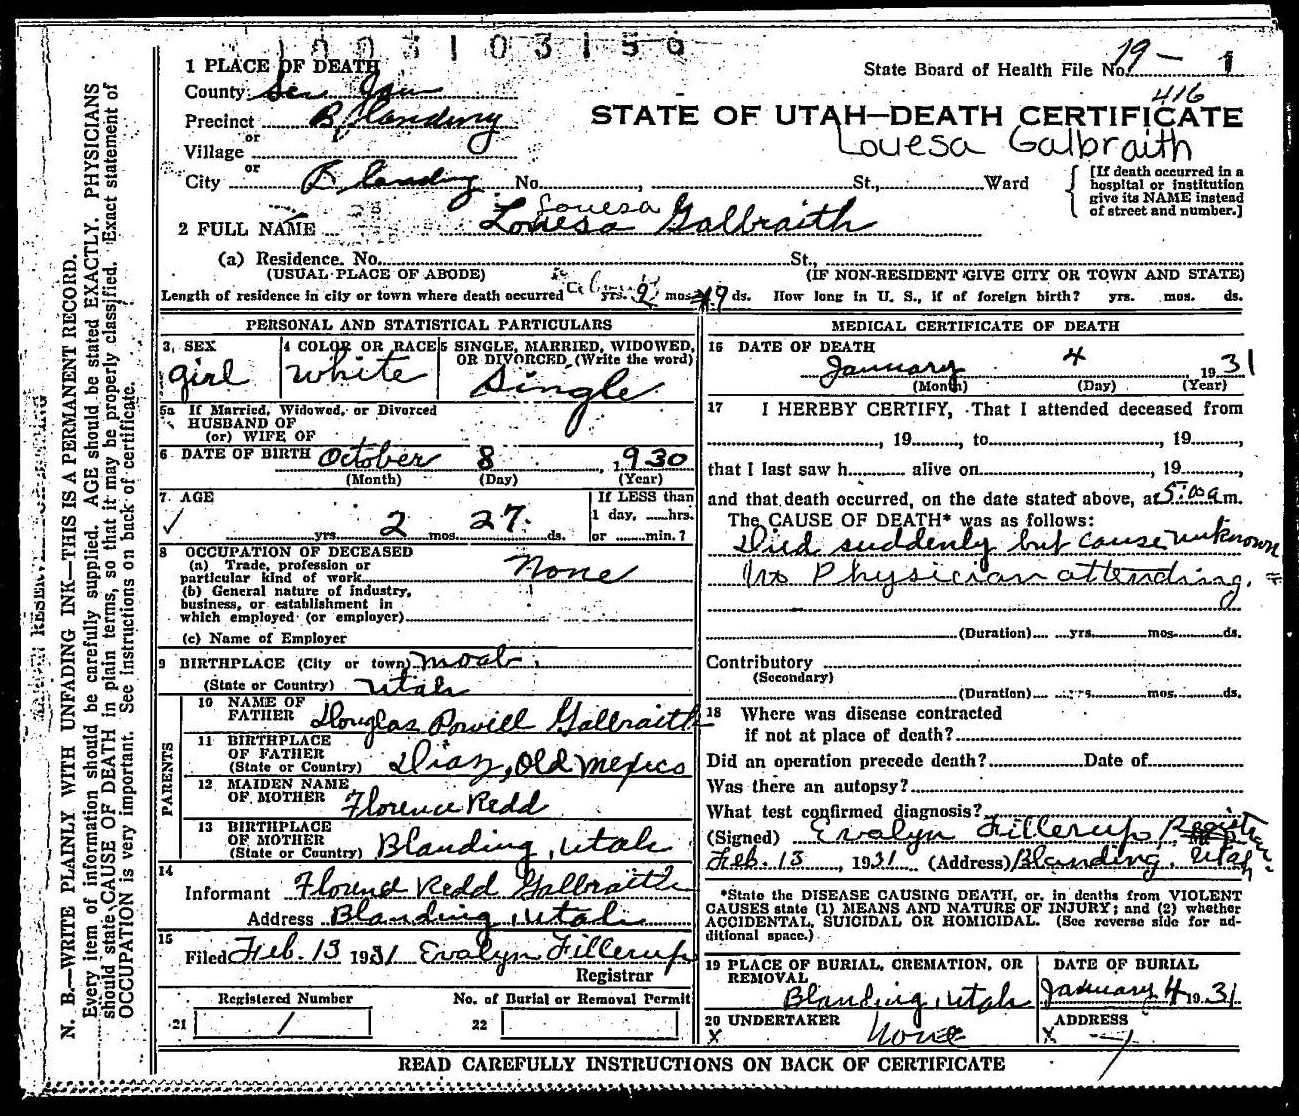 1003103150
1 PLACE OF DEATH
State Board of Health File No. 19 – 1
County: San Juan
416
Precinct Blanding
STATE OF UTAH—DEATH CERTIFICATE
or
Village
Louesa Galbraith
or
City Blanding No. , St., Ward
[If death occurred in a hospital or institution give its NAME instead of street and number.]
Louesa
2 FULL NAME Louesa Galbraith
(a) Residence. No. St.,
(USUAL PLACE OF ABODE) (IF NON-RESIDENT GIVE CITY OR TOWN AND STATE)
Length of residence in city or town where death occurred yrs. 2 mos. 19 ds. How long in U. S., if of foreign birth? yrs. mos. ds.
PERSONAL AND STATISTICAL PARTICULARS
3. SEX
girl
4 COLOR OR RACE
white
5 SINGLE, MARRIED, WIDOWED, OR DIVORCED (Write the word)
Single
5a If Married, Widowed, or Divorced
HUSBAND OF
(or) WIFE OF
6 DATE OF BIRTH October 8, 1930
(Month) (Day) (Year)
7. AGE
If LESS than
1 day, hrs.
or min.?
yrs. 2 mos. 27 ds.
8 OCCUPATION OF DECEASED
(a) Trade, profession or
particular kind of work None
(b) General nature of Industry,
business, or establishment in
which employed (or employer)
(c) Name of Employer
9 BIRTHPLACE (City or town) Moab,
(State or Country) Utah
PARENTS
10 NAME OF
FATHER Douglas Powell Galbraith
11 BIRTHPLACE
OF FATHER
(State or Country) Diaz, Old Mexico
12 MAIDEN NAME
OF MOTHER Florence Redd
13 BIRTHPLACE
OF MOTHER
(State or Country) Blanding, Utah
14
Informant Florence Redd Galbraith
Address Blanding, Utah
15
Filed Feb. 13 1931 Evalyn Fillerup
Registrar
Registered Number No. of Burial or Removal Permit
21 1 22
MEDICAL CERTIFICATE OF DEATH
16 DATE OF DEATH
January 4 1931
(Month) (Day) (Year)
17 I HEREBY CERTIFY, That I attended deceased from
, 19 , to , 19 ,
that I last saw h alive on , 19 ,
and that death occurred, on the date stated above, at 5:00 a m.
The CAUSE OF DEATH* was as follows:
Died suddenly but cause unknown
No Physician attending.
(Duration) yrs. mos. ds.
Contributory
(Secondary)
(Duration) yrs. mos. ds.
18 Where was disease contracted
if not at place of death?
Did an operation precede death? Date of
Was there an autopsy?
What test confirmed diagnosis?
(Signed) Evalyn Fillerup Registrar.
Feb. 13, 1931 (Address) Blanding, Utah
*State the DISEASE CAUSING DEATH, or, in deaths from VIOLENT
CAUSES state (1) MEANS AND NATURE OF INJURY; and (2) whether
ACCIDENTAL, SUICIDAL OR HOMICIDAL. (See reverse side for ad-
ditional space.)
19 PLACE OF BURIAL, CREMATION, OR
REMOVAL
Blanding, Utah
DATE OF BURIAL
January 4 1931
20 UNDERTAKER
X None
ADDRESS
X
READ CAREFULLY INSTRUCTIONS ON BACK OF CERTIFICATE
N. B.—WRITE PLAINLY WITH UNFADING INK—THIS IS A PERMANENT RECORD.
Every item of information should be carefully supplied. AGE should be stated EXACTLY. PHYSICIANS
should state CAUSE OF DEATH in plain terms, so that it may be properly classified. Exact statement of
OCCUPATION is very important. See instructions on back of certificate.